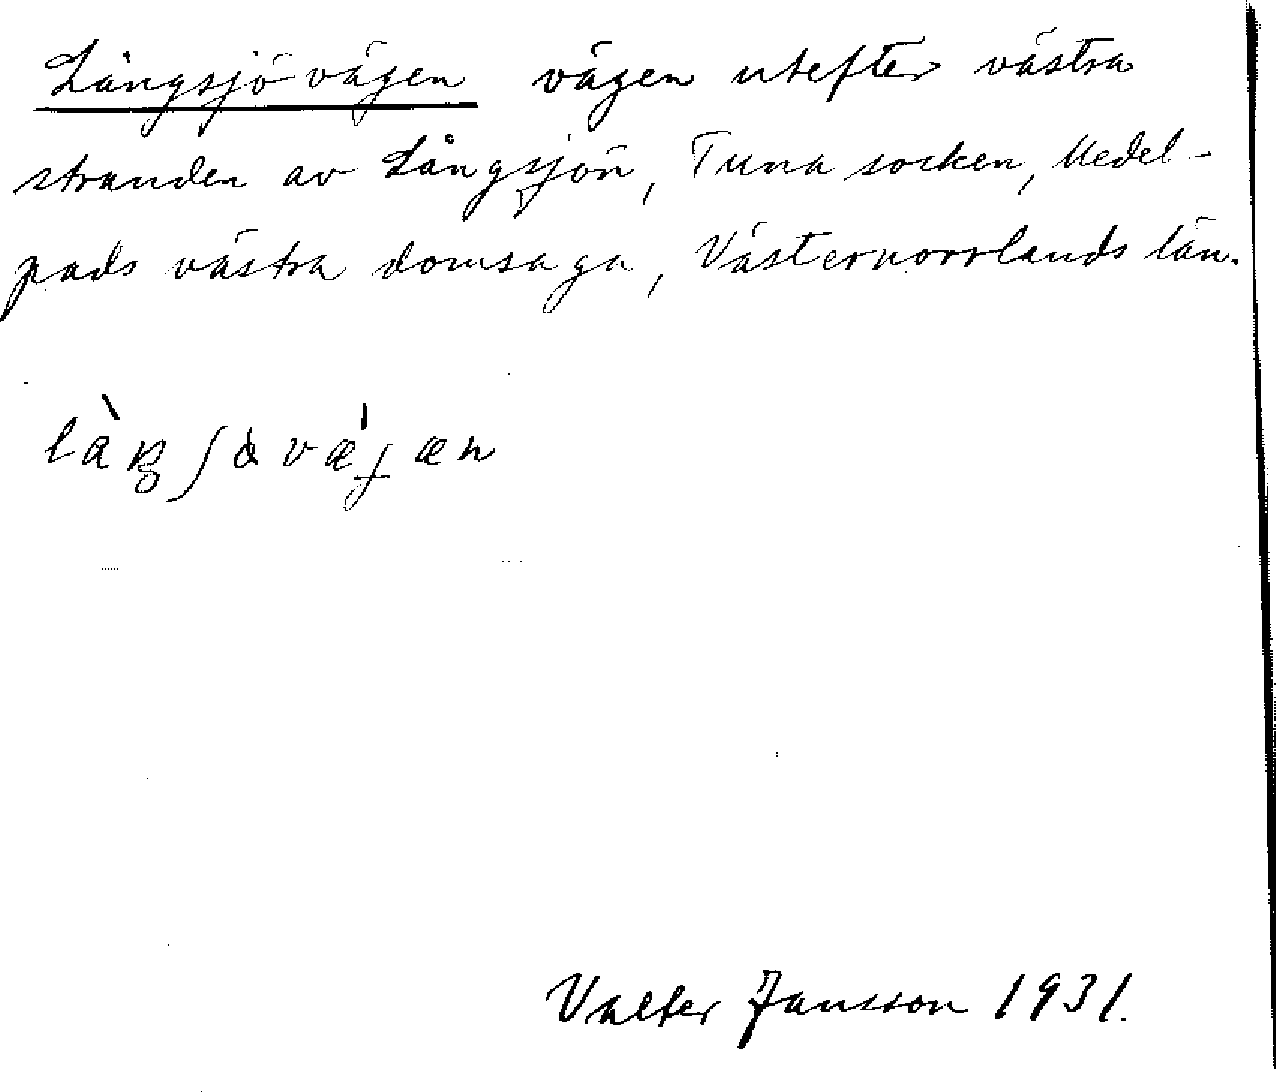 Långsjövägen vägen utefter västra
stranden av Långsjön, Tuna socken, Medel-
pads västra domsaga, Västernorrlands län.
Valter Jansson 1931.